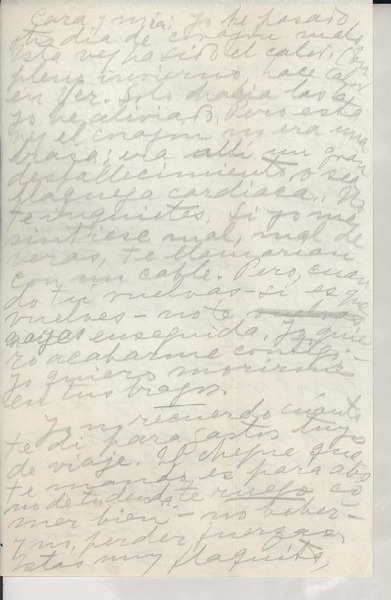 Cara y mía: Yo he pasado
otro día de corazón malo.
Esta vez ha sido el calor. (En
pleno invierno, hace calor
en Ver. Solo hacia las 9
yo he aliviado. Pero esta
vez el corazón no era una
braza; era allí un gran
desfallecimiento, o sea
flaqueza cardíaca. No
te inquietes. Si yo me
sintiese mal, mal de
veras, te llamarían
con un cable. Pero, cuan-
do tú vuelvas - si es que
vuelves - no te vuelvas
vayas enseguida. Yo quie-
ro acabarme contigo.
Yo quiero morirme
en tus brazos.
Yo no recuerdo cuánto
te di para gastos tuyos
de viaje. El cheque que
te mando es para abo-
no de tu deuda te ruego co-
mer bien - no beber -
y no perder fuerzas.
Estás muy flaquita,